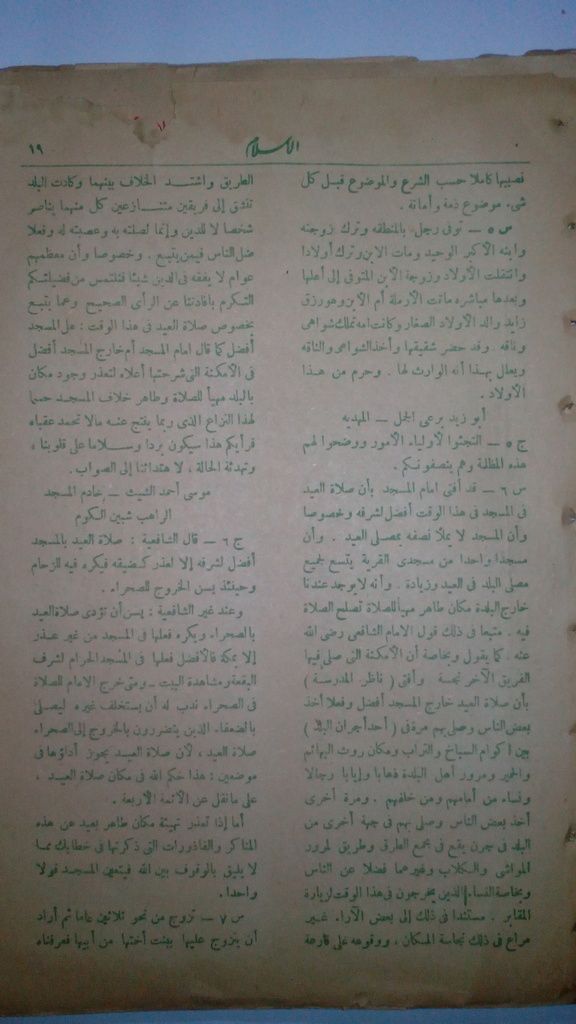 ١٦
الاسلام
١٩
فصيبها كاملا حسب الشرع والموضوع قبل كل
شىء موضوع ذمة وأمانة .
س ٥ — توفى رجل بالمنطقه وترك زوجته
وابنه الأكبر الوحيد ومات الابن وترك أولادا
وانتقلت الأولاد وزوجة الابن المتوفى إلى أهلها
وبعدها مباشره ماتت الأرملة أم الابن وهو رزق
زايد والد الأولاد الصغار وكانت امه تملك شواهى
وناقه . وقد حضر شقيقها وأخذ الشواهى والناقه
ويعلل بهذا أنه الوارث لها . وحرم من هذا
الأولاد .
أبو زيد برعى الجمل — المهديه
ج ٥ — التجئوا لأولياء الأمور ووضحوا لهم
هذه المظلمة وهم ينصفونكم .
س ٦ — قد أفتى امام المسجد بأن صلاة العيد
فى المسجد فى هذا الوقت أفضل لشرفه وخصوصا
وأن المسجد لا يملأ نصفه بمصلى العيد . وأن
مسجدا واحدا من مسجدى القرية يتسع لجميع
مصلى البلد فى العيد وزيادة . وأنه لا يوجد عندنا
خارج البلدة مكان طاهر مهيأ للصلاة تصلح الصلاة
فيه . متبعا فى ذلك قول الامام الشافعى رضى الله
عنه . كما يقول وبخاصة أن الأمكنة التى صلى فيها
الفريق الآخر نجسة وأفتى ( ناظر المدرسة )
بأن صلاة العيد خارج المسجد أفضل وفعلا أخذ
بعض الناس وصلى بهم مرة فى ( أحد أجران البلد )
بين أكوام السباخ والتراب ومكان روث البهائم
والحمير ومرور أهل البلدة ذهابا وإيابا رجالا
ونساء من أمامهم ومن خلفهم . ومرة أخرى
أخذ بعض الناس وصلى بهم فى جهة أخرى من
البلد فى جرن يقع فى مجمع الطرق وطريق لمرور
المواشى والكلاب وغيرهما فضلا عن الناس
وبخاصة النساء الذين يخرجون فى هذا الوقت لزيارة
المقابر . مستندا فى ذلك إلى بعض الآراء غير
مراع فى ذلك نجاسة المكان . ووقوعه على قارعة
الطريق واشتد الخلاف بينهما وكادت البلد
تنشق إلى فريقين متنازعين كل منهما يناصر
شخصا لا للدين وإنما لصلته به وعصبيته له وفعلا
ضل الناس فيمن يتبع . وخصوصا وأن معظمهم
عوام لا يفقه فى الدين شيئا فنلتمس من فضيلتكم
التكرم بافادتنا عن الرأى الصحيح وعما يتبع
بخصوص صلاة العيد فى هذا الوقت : على المسجد
أفضل كما قال امام المسجد أم خارج المسجد أفضل
فى الأمكنة التى شرحتها أعلاه لتعذر وجود مكان
بالبلد مهيأ للصلاة وطاهر خلاف المسجد حسما
لهذا النزاع الذى ربما ينتج عنه مالا تحمد عقباه
فرأيكم هذا سيكون بردا وسلاما على قلوبنا ،
وتهدئة الحالة ، لاهتدائنا إلى الصواب .
موسى أحمد الشيت — خادم المسجد
الراهب شبين الكوم
ج ٦ — قال الشافعية : صلاة العيد بالمسجد
أفضل لشرفه إلا لعذر كضيقه فيكره فيه للزحام
وحينئذ يسن الخروج للصحراء .
وعند غير الشافعية : يسن أن تؤدى صلاة العيد
بالصحراء ويكره فعلها فى المسجد من غير عذر
إلا بمكة فالأفضل فعلها فى المسجد الحرام لشرف
البقعة ومشاهدة البيت — ومتى خرج الامام للصلاة
فى الصحراء ندب له أن يستخلف غيره ليصلى
بالضعفاء الذين يتضررون بالخروج إلى الصحراء
صلاة العيد ، لأن صلاة العيد يجوز أداؤها فى
موضعين : هذا حكم الله فى مكان صلاة العيد ،
على ما نقل عن الأئمة الأربعة .
أما إذا تعذر تهيئة مكان طاهر بعيد عن هذه
المناكر والقاذورات التى ذكرتها فى خطابك مما
لا يليق بالوقوف بين الله فيتعين المسجد قولا
واحدا .
س ٧ — تزوج من نحو ثلاثين عاما ثم أراد
أن يتزوج عليها ببنت أختها من أبيها فعرفناه